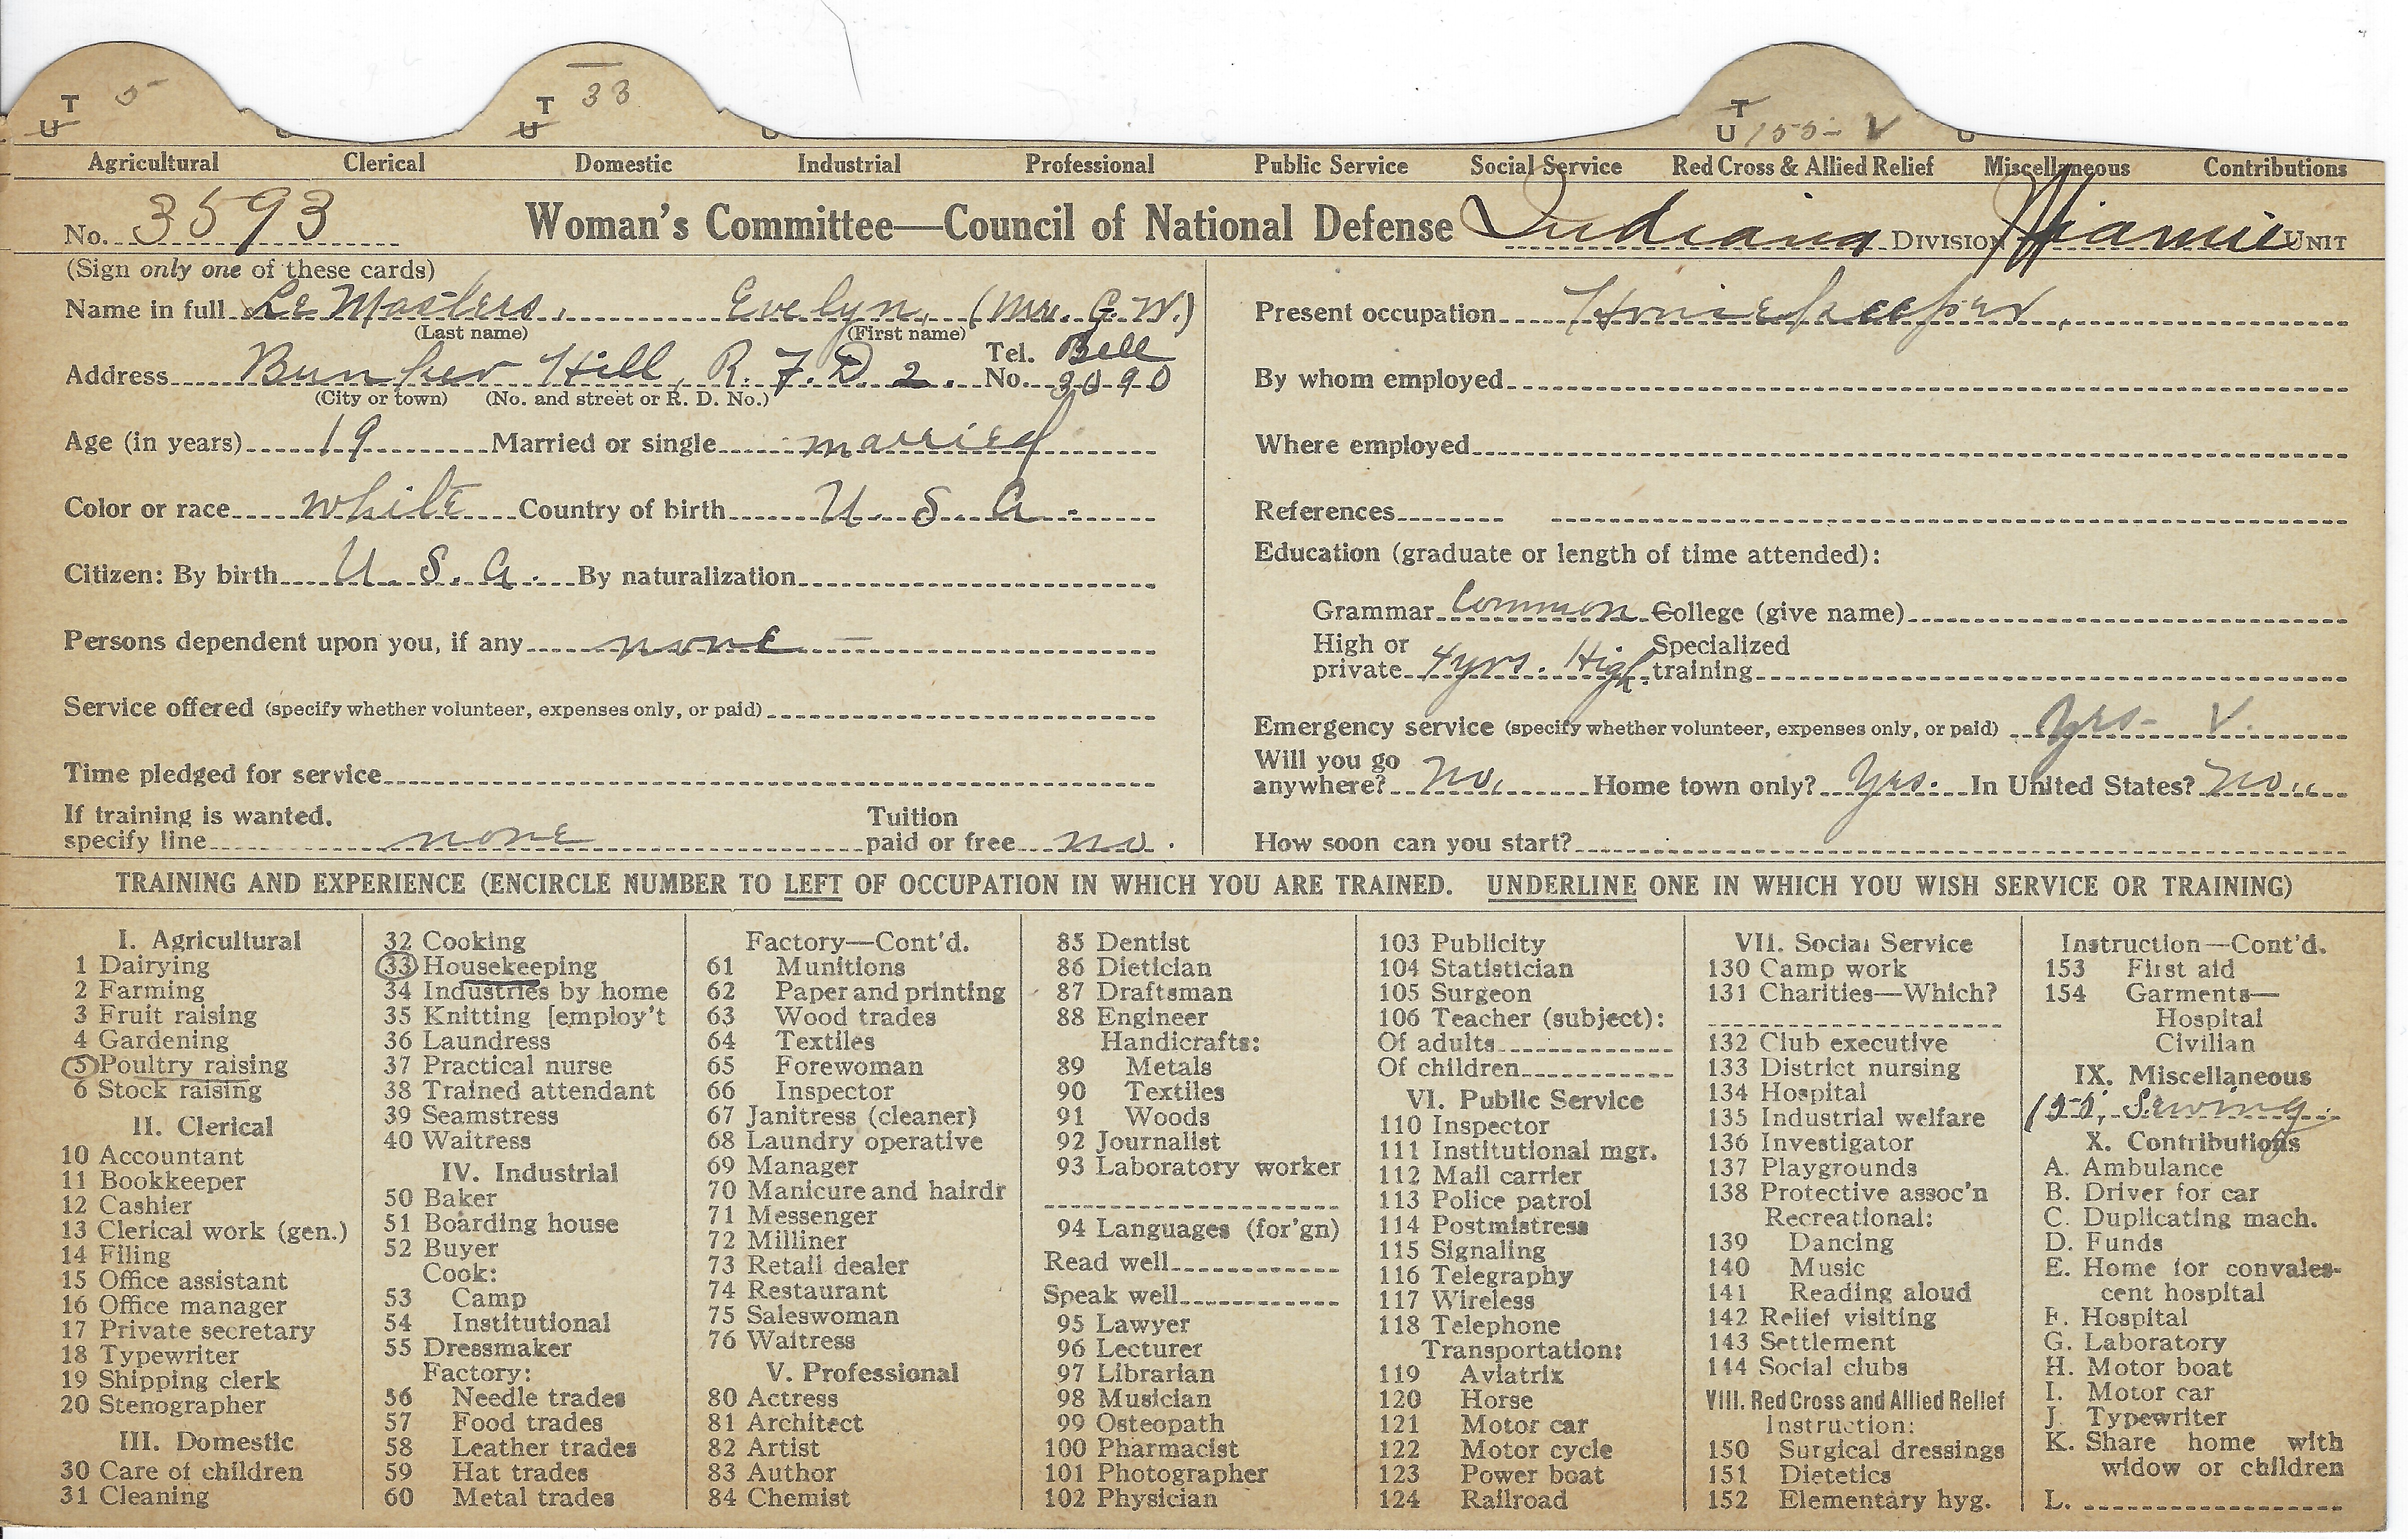 T 5 T 33 T
U U U 155- V
Agricultural Clerical Domestic Industrial Professional Public Service Social Service Red Cross & Allied Relief Miscellaneous Contributions
No. 3593 Woman's Committee—Council of National Defense Indiana DIVISION Miami UNIT
(Sign only one of these cards)
Name in full Le Masters, Evelyn, (Mrs. G.W.)
(Last name) (First name)
Address Bunker Hill, R. F. D 2. Tel. No. Bell 3090
(City or town) (No. and street or R. D. No.)
Age (in years) 19 Married or single married
Color or race white Country of birth U. S. A.
Citizen: By birth U. S. A. By naturalization
Persons dependent upon you, if any none —
Service offered (specify whether volunteer, expenses only, or paid)
Time pledged for service
If training is wanted.
specify line none Tuition paid or free no.
Present occupation Housekeeper.
By whom employed
Where employed
References
Education (graduate or length of time attended):
Grammar Common College (give name)
High or private 4 yrs. High. Specialized training
Emergency service (specify whether volunteer, expenses only, or paid) yes- V.
Will you go anywhere? no, Home town only? yes. In United States? no..
How soon can you start?
TRAINING AND EXPERIENCE (ENCIRCLE NUMBER TO LEFT OF OCCUPATION IN WHICH YOU ARE TRAINED. UNDERLINE ONE IN WHICH YOU WISH SERVICE OR TRAINING)
I. Agricultural
1 Dairying
2 Farming
3 Fruit raising
4 Gardening
5 Poultry raising
6 Stock raising
II. Clerical
10 Accountant
11 Bookkeeper
12 Cashier
13 Clerical work (gen.)
14 Filing
15 Office assistant
16 Office manager
17 Private secretary
18 Typewriter
19 Shipping clerk
20 Stenographer
III. Domestic
30 Care of children
31 Cleaning
32 Cooking
33 Housekeeping
34 Industries by home
35 Knitting [employ't
36 Laundress
37 Practical nurse
38 Trained attendant
39 Seamstress
40 Waitress
IV. Industrial
50 Baker
51 Boarding house
52 Buyer
Cook:
53 Camp
54 Institutional
55 Dressmaker
Factory:
56 Needle trades
57 Food trades
58 Leather trades
59 Hat trades
60 Metal trades
Factory—Cont'd.
61 Munitions
62 Paper and printing
63 Wood trades
64 Textiles
65 Forewoman
66 Inspector
67 Janitress (cleaner)
68 Laundry operative
69 Manager
70 Manicure and hairdr
71 Messenger
72 Milliner
73 Retail dealer
74 Restaurant
75 Saleswoman
76 Waitress
V. Professional
80 Actress
81 Architect
82 Artist
83 Author
84 Chemist
85 Dentist
86 Dietician
87 Draftsman
88 Engineer
Handicrafts:
89 Metals
90 Textiles
91 Woods
92 Journalist
93 Laboratory worker
94 Languages (for'gn)
Read well
Speak well
95 Lawyer
96 Lecturer
97 Librarian
98 Musician
99 Osteopath
100 Pharmacist
101 Photographer
102 Physician
103 Publicity
104 Statistician
105 Surgeon
106 Teacher (subject):
Of adults
Of children
VI. Public Service
110 Inspector
111 Institutional mgr.
112 Mail carrier
113 Police patrol
114 Postmistress
115 Signaling
116 Telegraphy
117 Wireless
118 Telephone
Transportation:
119 Aviatrix
120 Horse
121 Motor car
122 Motor cycle
123 Power boat
124 Railroad
VII. Social Service
130 Camp work
131 Charities—Which?
132 Club executive
133 District nursing
134 Hospital
135 Industrial welfare
136 Investigator
137 Playgrounds
138 Protective assoc'n
Recreational:
139 Dancing
140 Music
141 Reading aloud
142 Relief visiting
143 Settlement
144 Social clubs
VIII. Red Cross and Allied Relief
Instruction:
150 Surgical dressings
151 Dietetics
152 Elementary hyg.
Instruction—Cont'd.
153 First aid
154 Garments—
Hospital
Civilian
IX. Miscellaneous
155, Sewing.
X. Contributions
A. Ambulance
B. Driver for car
C. Duplicating mach.
D. Funds
E. Home for convales-
cent hospital
F. Hospital
G. Laboratory
H. Motor boat
I. Motor car
J. Typewriter
K. Share home with
widow or children
L.